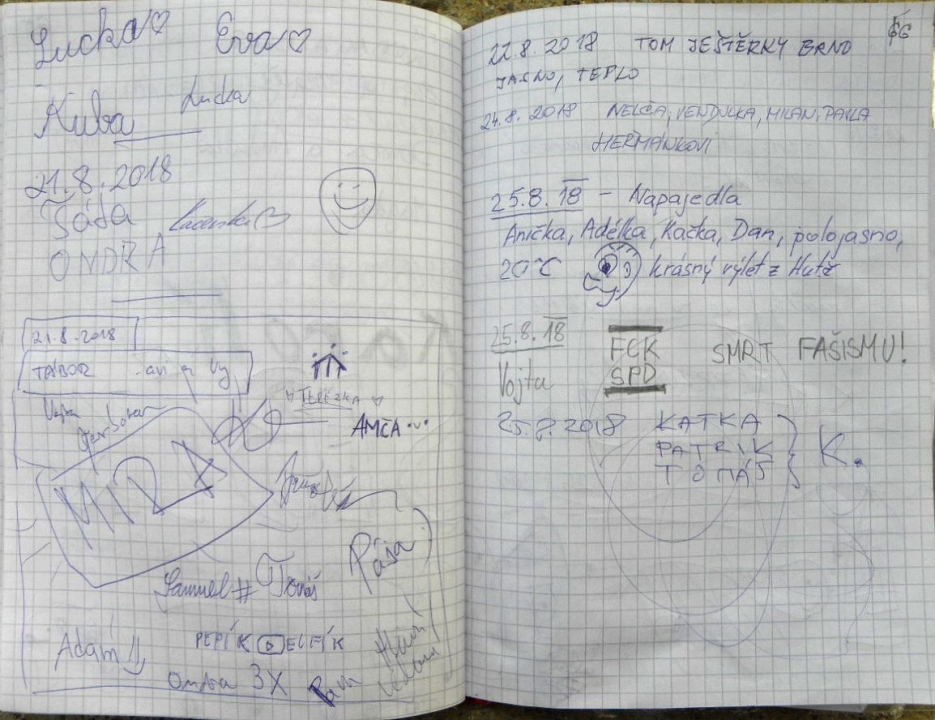 Lucka Eva
Kuba Lucka
21.8.2018
Táda
ONDRA
21.8.2018
TÁBOR
TEREZKA
AMČA...
MÍRA
Pája
Samuel # Tomáš
Adam
PEPÍK ELFÍK
Ondra 3X
22.8.2018 TOM JEŠTĚRKY BRNO
JASNO, TEPLO
24.8.2018 NELČA, VENDULKA, MILAN, PAVLA
HEŘMÁNKOVI
25.8.18 – Napajedla
Anička, Adélka, Kačka, Dan, polojasno,
20°C krásný výlet z Hutě
25.8.18 FCK SMRT FAŠISMU!
Vojta SPD
25.8.2018 KATKA
PATRIK K.
TOMÁŠ